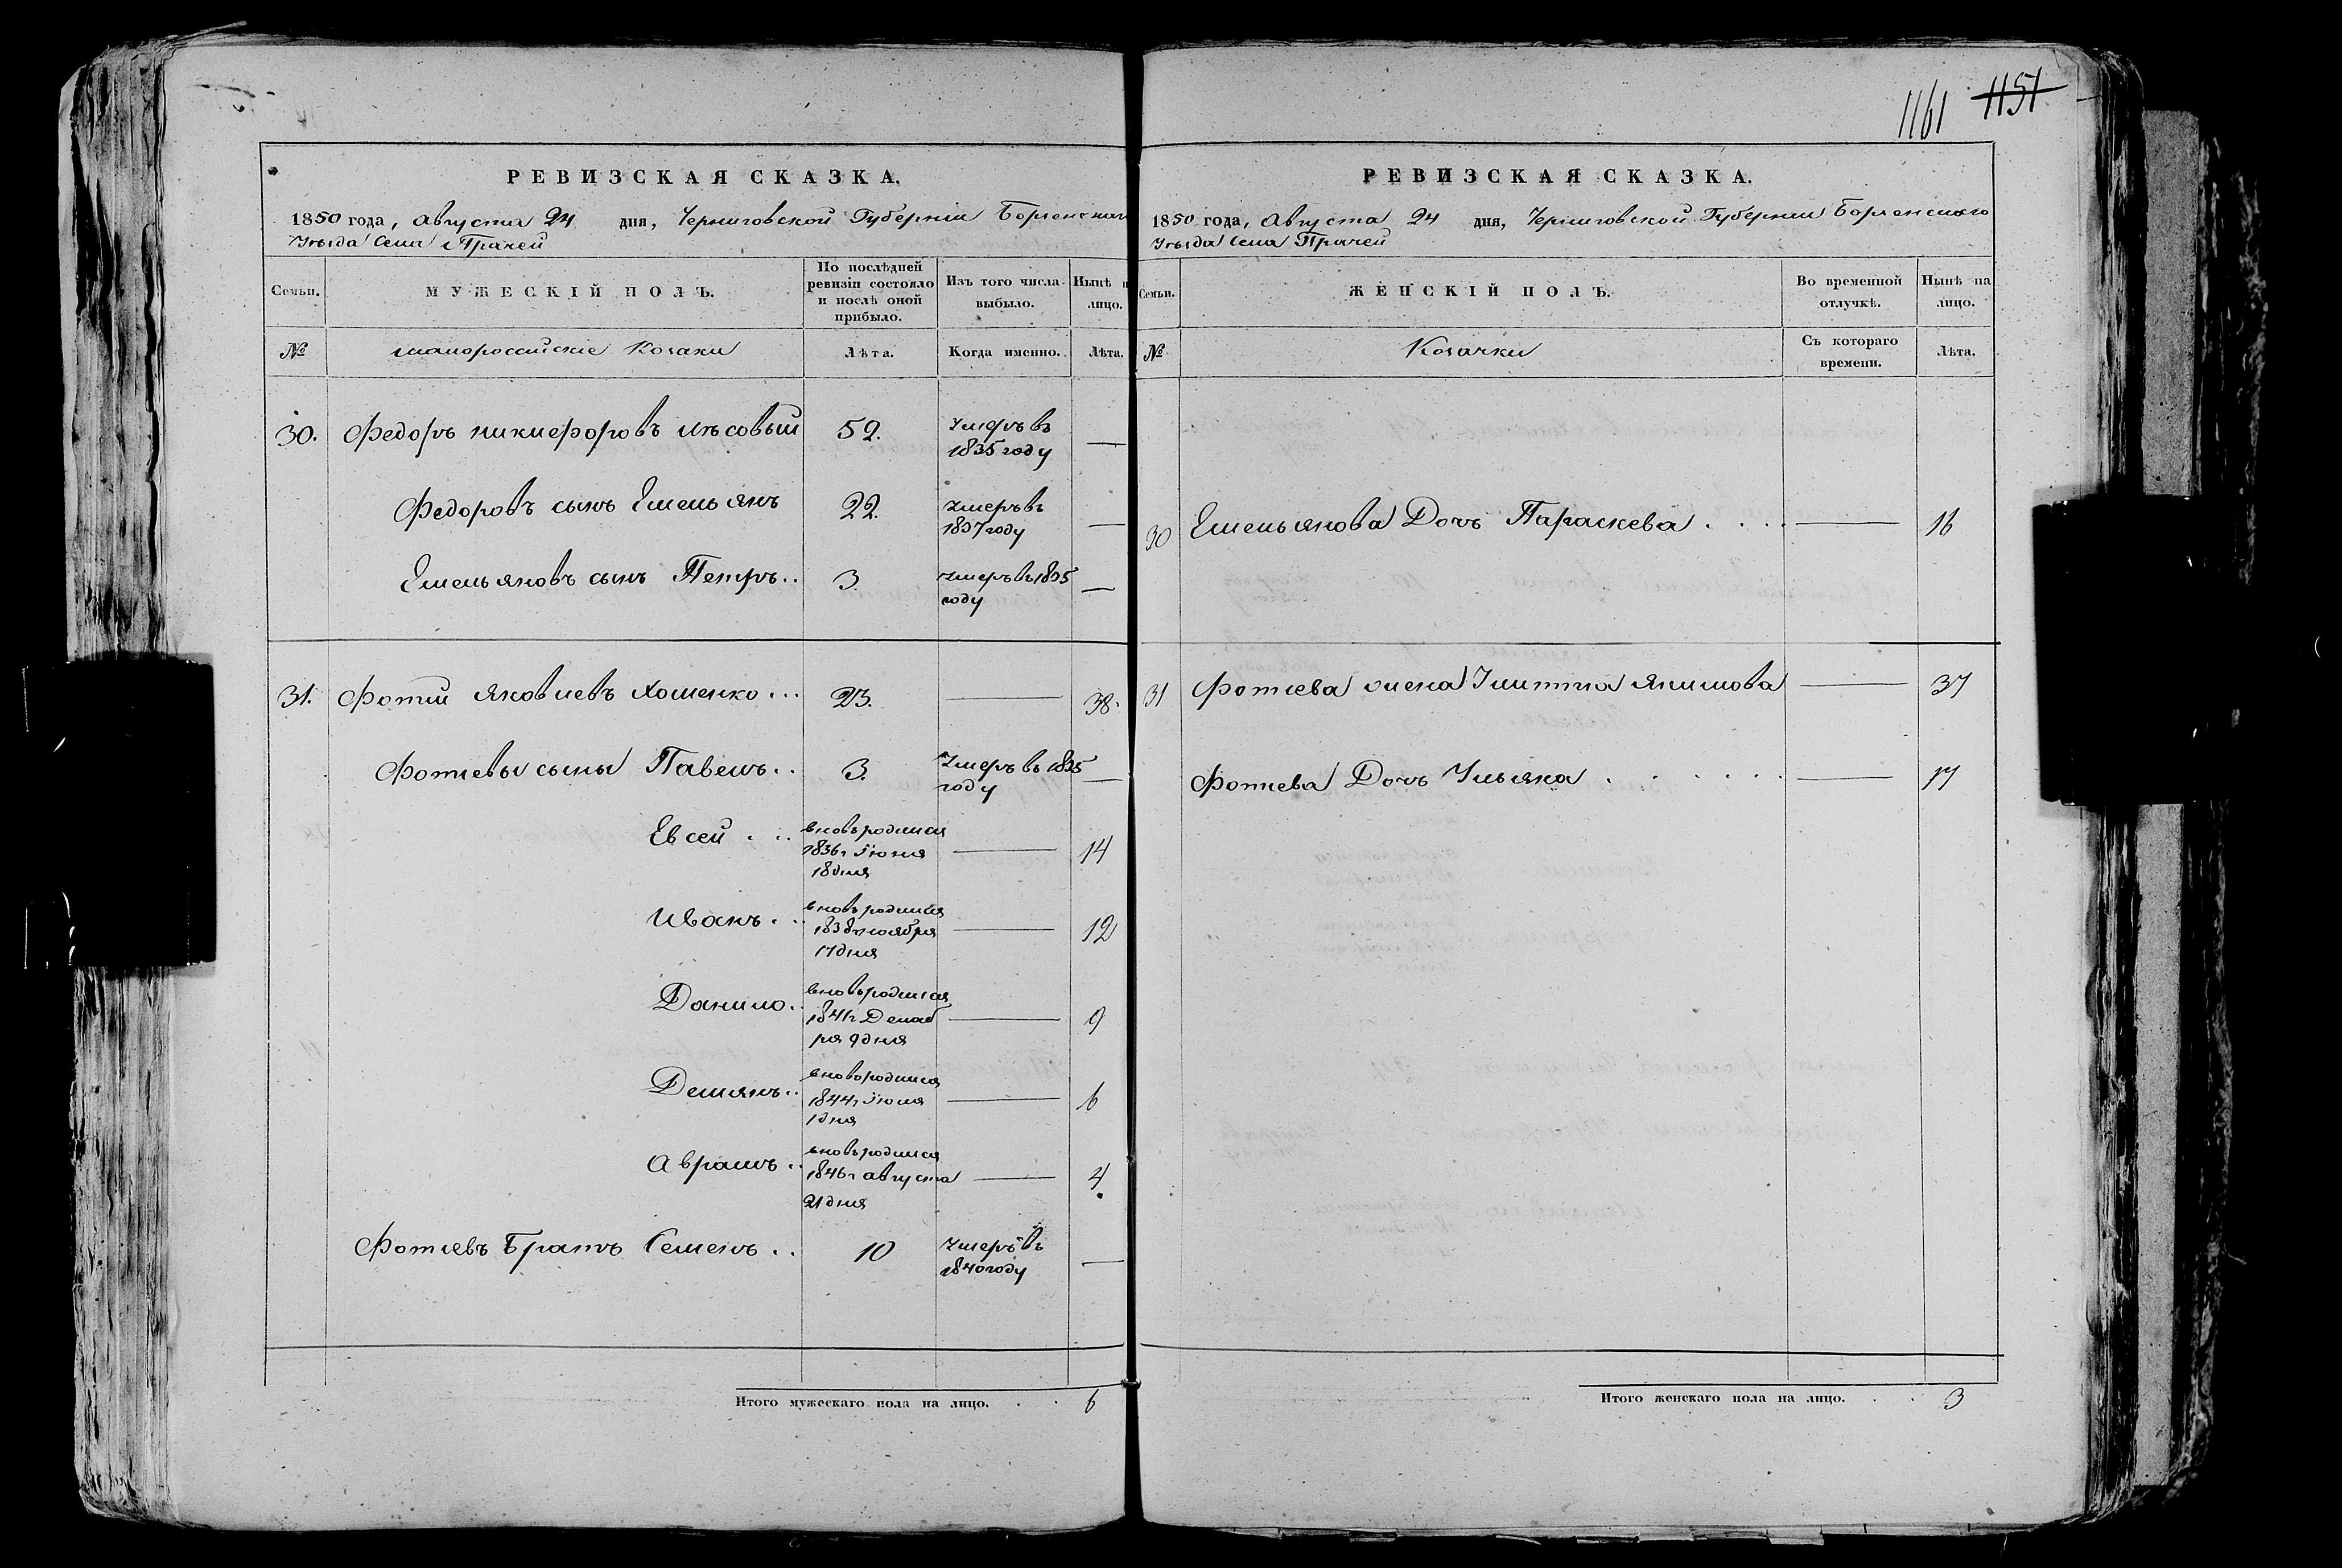 1161 1151
РЕВИЗСКАЯ СКАЗКА.
1850 года, Августа 24 дня, Черниговской Губерніи Борзенскаго
Уѣзда Села Прачей
Семьи. МУЖЕСКІЙ ПОЛЪ. По послѣдней ревизіи состояло и послѣ оной прибыло. Изъ того числа выбыло. Нынѣ н лицо.
№ малороссійскіе Козаки Лѣта. Когда именно. Лѣта.
30. Федоръ никифоровъ Лѣсовый 52. Умеръ въ 1835 году —
Федоровъ сынъ Емельянъ 22. Умеръ въ 1837 году —
Емельяновъ сынъ Петръ.. 3. Умеръ въ 1835 году —
31. Фотій Яковлевъ Хоменко... 23. — 38.
Фотіевы сыны Павелъ.. 3. Умеръ въ 1835 году —
Евсей... вновь родился 1836 г Іюня 18 дня — 14
Иванъ... вновь родился 1838 г ноября 17 дня — 12
Данило.. вновь родился 1841 г Декабря 9 дня — 9
Демянъ.. вновь родился 1844 г Іюня 1 дня — 6
Аврамъ.. вновь родился 1846 г августа 21 дня — 4
Фотіевъ Братъ Семенъ.. 10 Умеръ въ 1840 году —
Итого мужескаго пола на лицо. . . 6
РЕВИЗСКАЯ СКАЗКА.
1850 года, Августа 24 дня, Черниговской Губерніи Борзенскаго
Уѣзда Села Прачей
Семьи. ЖЕНСКІЙ ПОЛЪ. Во временной отлучкѣ. Нынѣ на лицо.
№ Козачки Съ котораго времени. Лѣта.
30 Емельянова Дочь Параскева.... — 16
31 Фотіева жена Якимова — 37
Фотіева Дочь Ульяна...... — 17
Итого женскаго пола на лицо. . . 3